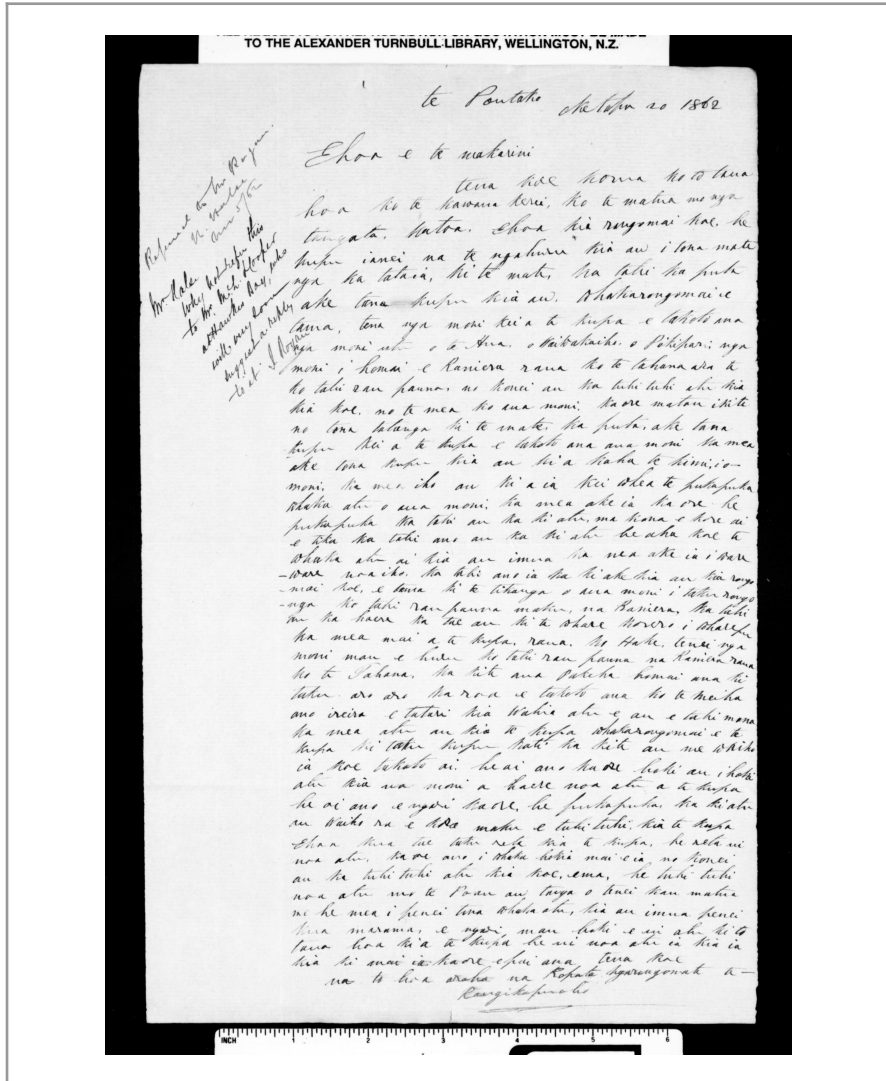 TO THE ALEXANDER TURNBULL LIBRARY, WELLINGTON, N.Z.
te Poutoko Oketopa 20 1862
Ehoa e te makarini
tena koe korua ko to taua
hoa ko te kawana kerei, ko te matua mo nga
tangata, katoa. Ehoa kia rongomai koe, he
kupu ianei na te ngahuru kia au i tona mate
nga ka tataia, ki te mate, ka tahi ka puta
ake tana kupu kia au. whakarongomai e
tama, tena nga moni kei a te kupa e takoto ana
nga moni o te Hua, o Waiwakaiho, o Potipari; nga
moni i homai e Raniera raua ko te tahana ara te
ko tahi rau pauna, no konei au ka tuhi tuhi atu kia
kia koe, no te mea ko aua moni, kaore matou i kite
no tona tatanga ki te mate, ka puta, ake tana
kupu kei a te kupa e takoto ana aua moni ka mea
ake tona kupu kia au ki'a kaha te kimi, io
moni, ka mea iho au ki'a ia kei whea te pukapuka
whaka atu o aua moni, ka mea ake ia kaore he
pukapuka ka tahi au ka ki atu, ma kona e kore ai
e tika ka tahi ano au ka ki atu he aha koe te
whaka atu ai kia au imua ka mea ake ia i ware
-ware noa iho. ka tahi ano ia ka ki ake kia au kia rongo
-mai koe, e tama ki te tikanga o aua moni i taku rongo
-nga ko tahi rau pauna maku, na Raniera, ka tahi
au ka haere ka tae au ki te whare korero i
ka mea mai a te kupa, raua, ko Hake, tenei nga
moni mau e huru ko tahi rau pauna na Raniera raua
ko te Tahana, ka kite ana Pakeha homai ana ki
taku aro aro ka roa e takoto ana ko te meiha
ano ireira e tatari kia wahia atu e au e tahi mona
ka mea atu au kia te kupa whakarongomai e te
kupa ki taku kupu kati ka kite au me waiho
ia koe takoto ai. heai ano kaore hoki au i hoki
atu kia na moni a haere noa atu a te kupa
he oi ano e ngari kaore, he pukapuka, ka ki atu
au waiho ra e koe maku e tuhi tuhi, kia te kupa
Ehoa kua tae taku reta kia te kupa, he reta ui
noa atu, kaore ano, i whaka hokia mai e ia no konei
au ka tuhi tuhi atu kia koe, ema, he tuhi tuhi
noa atu no te Pouri au, tanga o tenei kau matua
me he mea i penei tona whaka atu, kia au imua penei
kua marama, e ngari, mau hoki e ui atu ki to
taua hoa ki'a te kupa he ui noa atu ia kia ia
kia ki mai ia kaore e pai ana, tena koe
na to hoa aroha na Ropata Ngarongomate te
Rangikapuoho
Referred to Mr Rogan
Mr Halse
Why not refer this
to Mr. Cooper
at Hawkes Bay, who
will very soon
suggest a reply
to it J Rogan
INCH 1 2 3 4 5 6